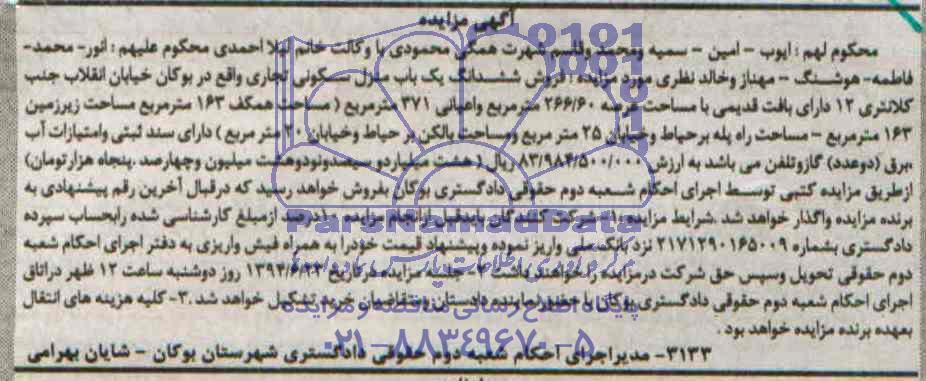 آگهی مزایده
محکوم لهم : ایوب - امین - سمیه ومحمد وقاسم شهرت همگی محمودی با وکالت خانم لیلا احمدی محکوم علیهم : انور- محمد-
فاطمه- هوشنگ - مهناز وخالد نظری مورد مزایده : فروش ششدانگ یک باب منزل مسکونی تجاری واقع در بوکان خیابان انقلاب جنب
کلانتری ۱۲ دارای بافت قدیمی با مساحت عرصه ۲۶۶/۶۰ مترمربع واعیانی ۳۷۱ مترمربع ( مساحت همکف ۱۶۳ مترمربع مساحت زیرزمین
۱۶۳ مترمربع - مساحت راه پله برحیاط وخیابان ۲۵ متر مربع ومساحت بالکن بر حیاط وخیابان ۲۰ متر مربع ) دارای سند ثبتی وامتیازات آب
،برق (دوعدد) گازوتلفن می باشد به ارزش ۸۳/۹۸۴/۵۰۰/۰۰۰ ریال ( هشت میلیاردو سیصدونودوهشت میلیون وچهارصد ،پنجاه هزارتومان)
ازطریق مزایده کتبی توسط اجرای احکام شعبه دوم حقوقی دادگستری بوکان بفروش خواهد رسید که درقبال آخرین رقم پیشنهادی به
برنده مزایده واگذار خواهد شد .شرایط مزایده :۱- شرکت کنندگان بایدقبل ازانجام مزایده ۱۰درصد ازمبلغ کارشناسی شده رابحساب سپرده
دادگستری بشماره ۲۱۷۱۲۹۰۱۶۵۰۰۹ نزد بانک ملی واریز نموده وپیشنهاد قیمت خودرا به همراه فیش واریزی به دفتر اجرای احکام شعبه
دوم حقوقی تحویل وسپس حق شرکت درمزایده را خواهند داشت ۲- جلسه مزایده درتاریخ ۱۳۹۳/۶/۲۴ روز دوشنبه ساعت ۱۲ ظهر دراتاق
اجرای احکام شعبه دوم حقوقی دادگستری بوکان با حضور نماینده دادستان ومتقاضیان خرید تشکیل خواهد شد .۳- کلیه هزینه های انتقال
بعهده برنده مزایده خواهد بود .
۳۱۳۳- مدیراجرای احکام شعبه دوم حقوقی دادگستری شهرستان بوکان - شایان بهرامی
ParsNamadData
پایگاه اطلاع رسانی مناقصه و مزایده
۰۲۱-۸۸۳۴۹۶۷۰-۵